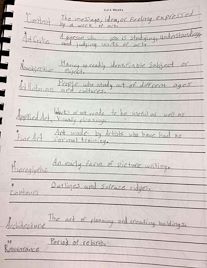 Content The message, idea, or feeling expressed
by a work of art.
Art Critic A person who is studying, understanding
and judging works of art.
Having a readily identifiable subject or
object.
People who study art of different ages
and cultures.
Work of art made to be useful as well as
Applied Art visually pleasing.
Art made by artists who have had no
formal training.
Hieroglyphs An early form of picture writing.
Contours Outlines and surface ridges.
Architecture The art of planning and creating buildings.
Renaissance Period of rebirth.